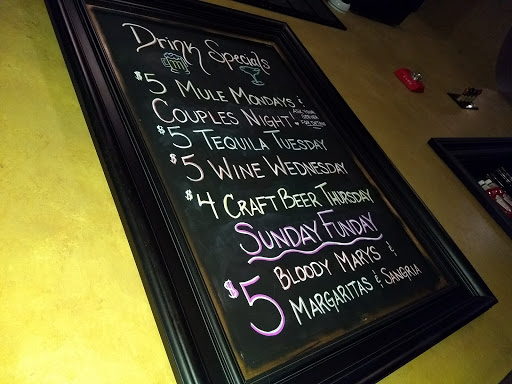 Drink Specials
$5 Mule Mondays &
Couples Night! Ask your server for details
$5 Tequila Tuesday
$5 Wine Wednesday
$4 Craft Beer Thursday
Sunday Funday
$5 Bloody Marys &
Margaritas & Sangria